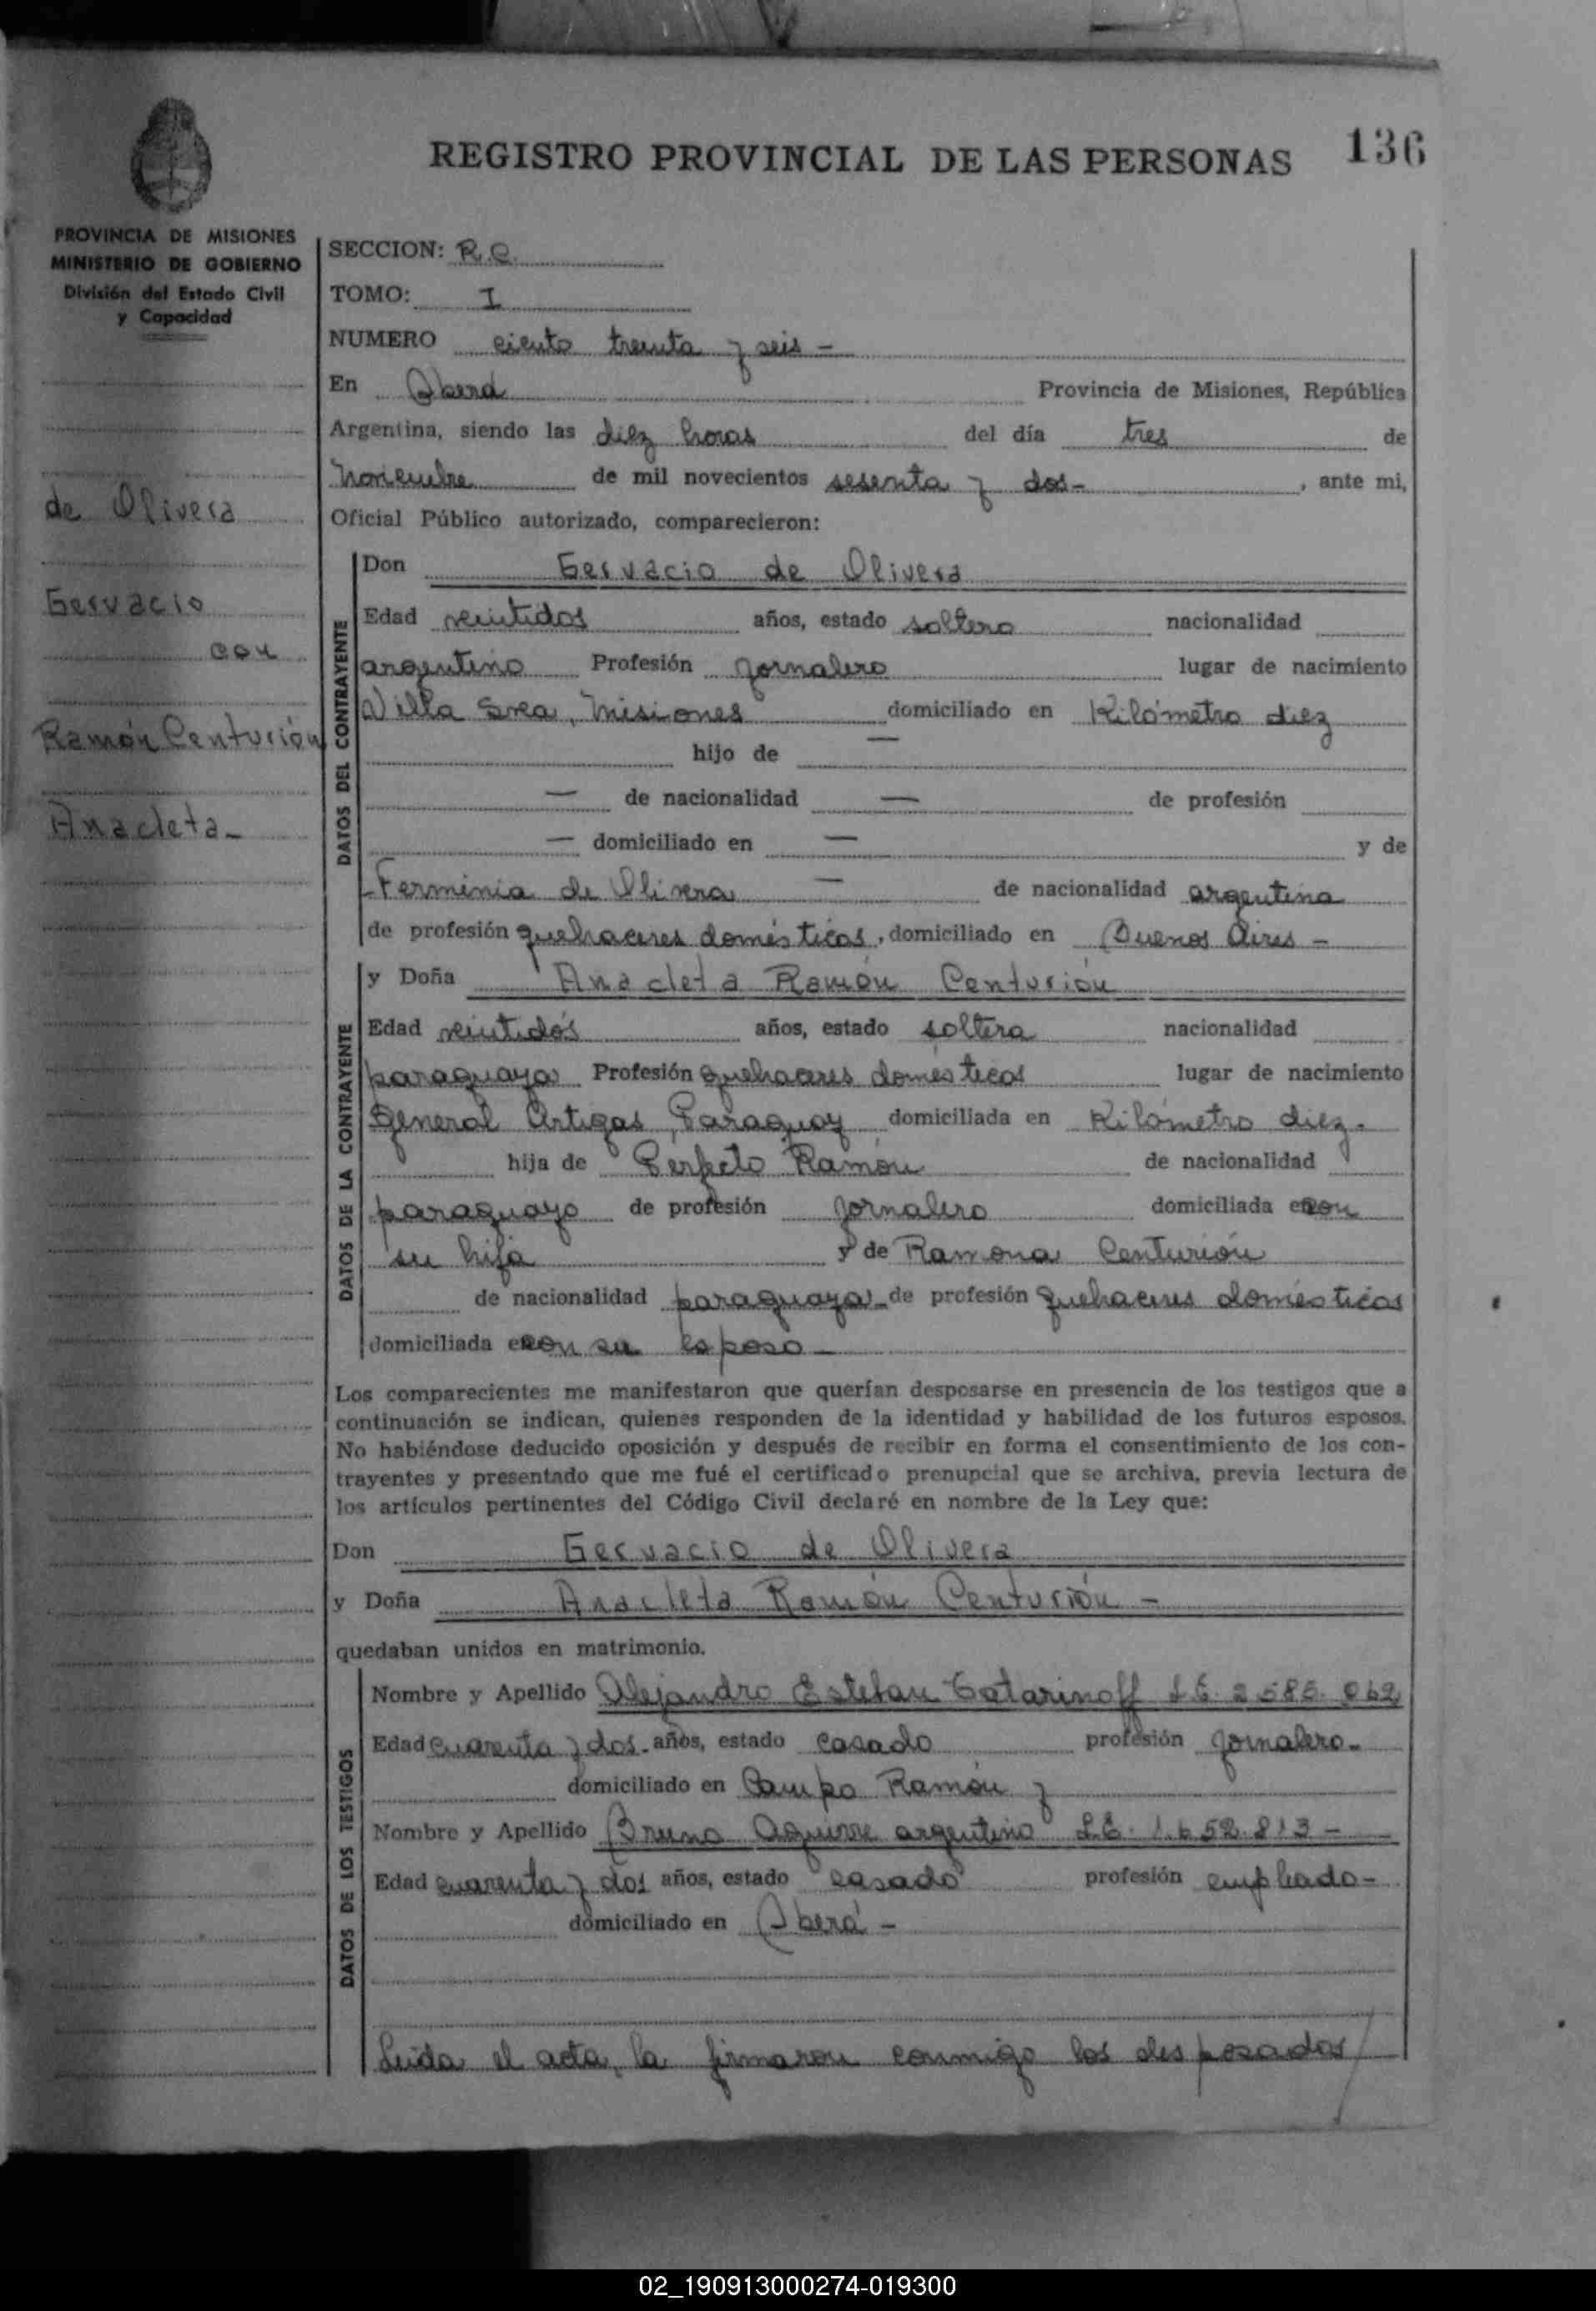 REGISTRO PROVINCIAL DE LAS PERSONAS 136
PROVINCIA DE MISIONES
MINISTERIO DE GOBIERNO
División del Estado Civil
y Capacidad
de Olivera
Gervacio
con
Ramón Centurión
Anacleta-
SECCION: R.C.
TOMO: I
NUMERO ciento treinta y seis -
En Oberá Provincia de Misiones, República
Argentina, siendo las diez horas del día tres de
noviembre de mil novecientos sesenta y dos- , ante mi,
Oficial Público autorizado, comparecieron:
DATOS DEL CONTRAYENTE
Don Gervacio de Olivera
Edad veintidos años, estado soltero nacionalidad
argentino Profesión jornalero lugar de nacimiento
Villa Svea, Misiones domiciliado en Kilómetro diez
hijo de —
— de nacionalidad — de profesión
— domiciliado en — y de
Ferminia de Olivera — de nacionalidad argentina
de profesión quehaceres domésticos, domiciliado en Buenos Aires -
DATOS DE LA CONTRAYENTE
y Doña Anacleta Ramón Centurión
Edad veintidós años, estado soltera nacionalidad
paraguaya Profesión quehaceres domésticos lugar de nacimiento
General Artigas, Paraguay domiciliada en Kilómetro diez.
hija de Perfecto Ramón de nacionalidad
paraguayo de profesión jornalero domiciliada con
su hija y de Ramona Centurión
de nacionalidad paraguaya de profesión quehaceres domésticos
domiciliada con su esposo -
Los comparecientes me manifestaron que querían desposarse en presencia de los testigos que a
continuación se indican, quienes responden de la identidad y habilidad de los futuros esposos.
No habiéndose deducido oposición y después de recibir en forma el consentimiento de los con-
trayentes y presentado que me fué el certificado prenupcial que se archiva, previa lectura de
los artículos pertinentes del Código Civil declaré en nombre de la Ley que:
Don Gervacio de Olivera
y Doña Anacleta Ramón Centurión -
quedaban unidos en matrimonio.
DATOS DE LOS TESTIGOS
Nombre y Apellido Alejandro Esteban Catarinoff L.E. 2.585.062
Edad cuarenta y dos- años, estado casado profesión jornalero-
domiciliado en Campo Ramón y
Nombre y Apellido Bruno Aguirre argentino L.E. 1.652.813 -
Edad cuarenta y dos años, estado casado profesión empleado-
domiciliado en Oberá -
Leida el acta, la firmaron conmigo los desposados
02_190913000274-019300